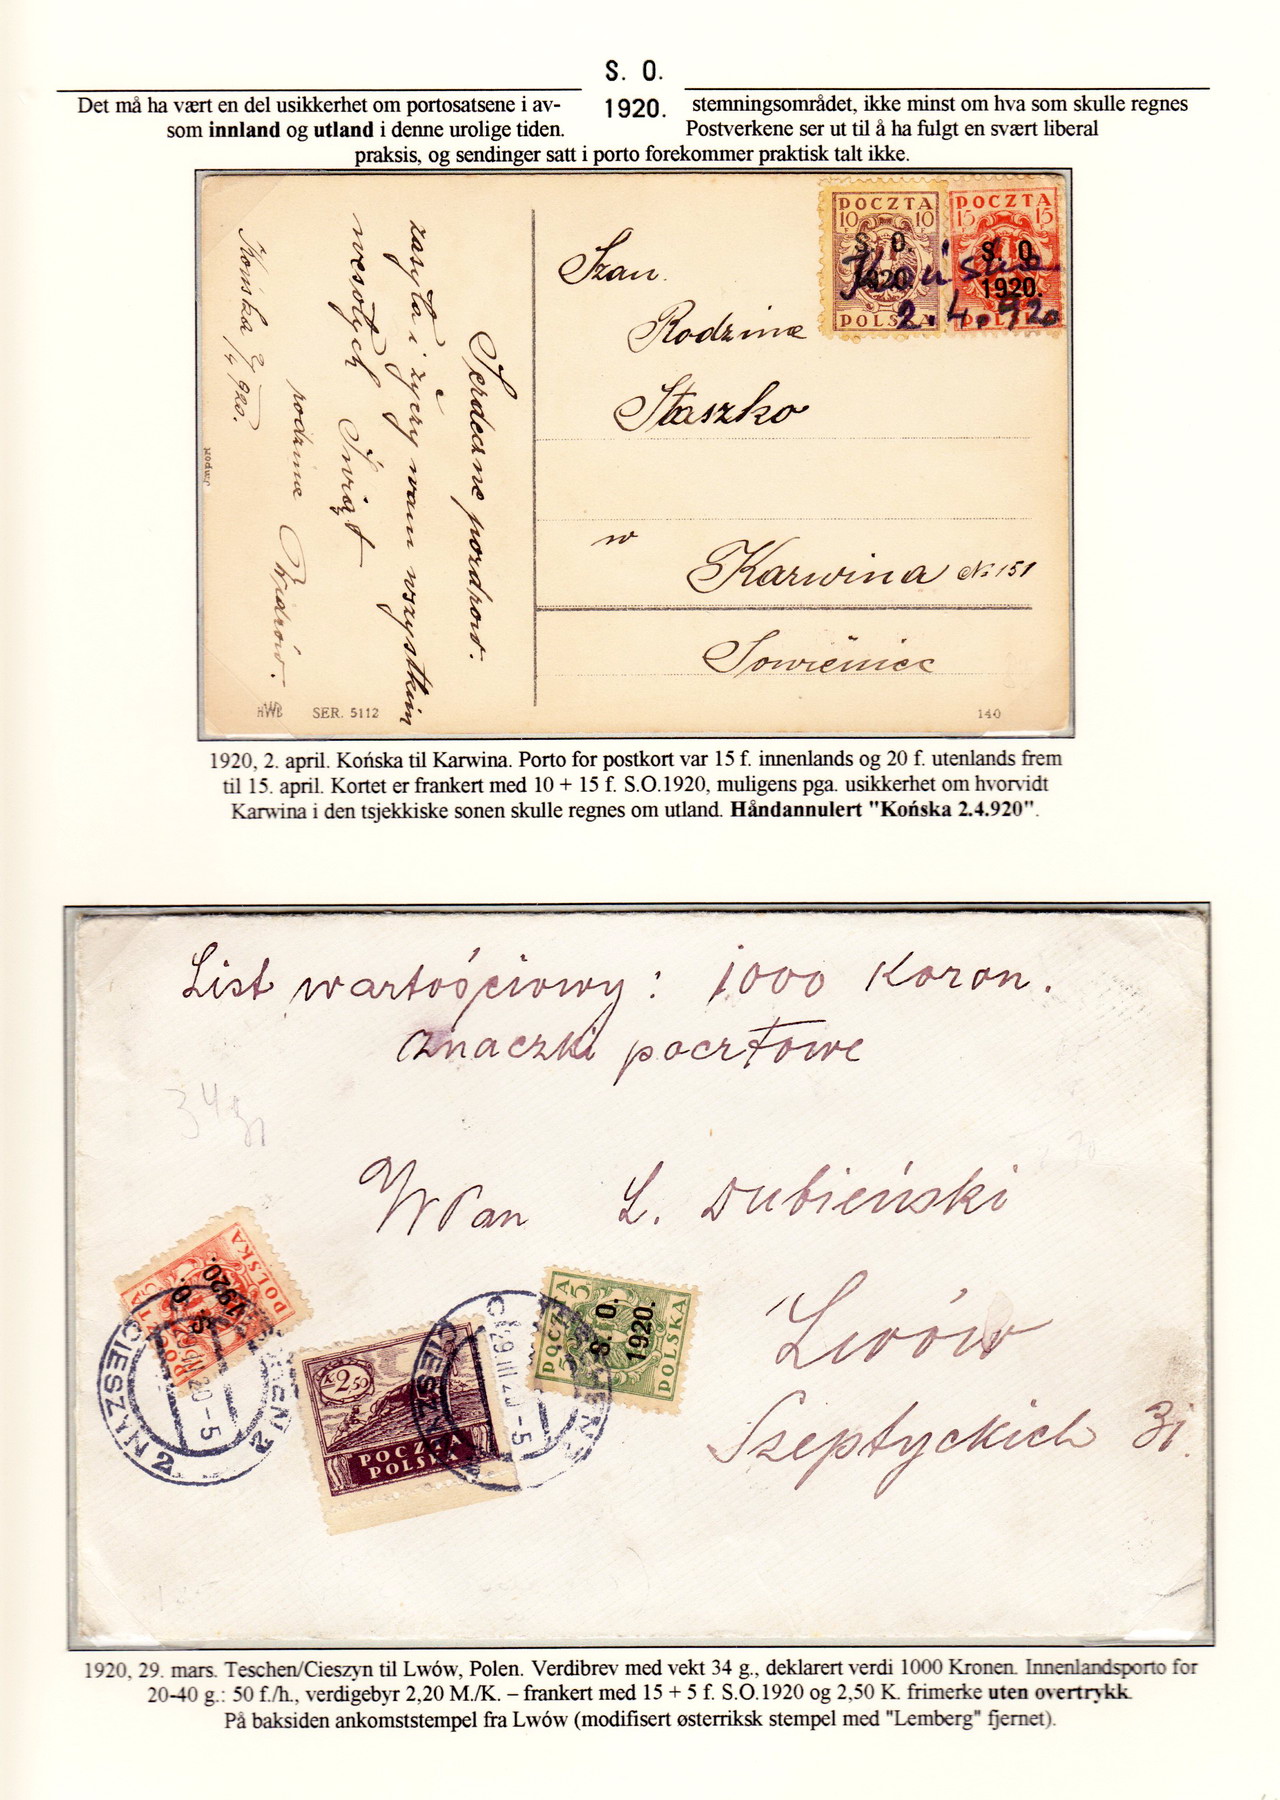 S. O.
1920.
Det må ha vært en del usikkerhet om portosatsene i av-
stemningsområdet, ikke minst om hva som skulle regnes
som innland og utland i denne urolige tiden.
Postverkene ser ut til å ha fulgt en svært liberal
praksis, og sendinger satt i porto forekommer praktisk talt ikke.
POCZTA
10 10
S. O.
1920.
POLSKA
POCZTA
15 15
S. O.
1920.
Końska
2.4.920
Szan.
Rodzina
Staszko
w
Karwina № 151
Serdeczne pozdrow.
zasyła i życzy wam wszystkim
wesołych Świąt
rodzina
Końska 2/4 920.
Import
HWB SER. 5112
140
1920, 2. april. Końska til Karwina. Porto for postkort var 15 f. innenlands og 20 f. utenlands frem
til 15. april. Kortet er frankert med 10 + 15 f. S.O.1920, muligens pga. usikkerhet om hvorvidt
Karwina i den tsjekkiske sonen skulle regnes om utland. Håndannulert "Końska 2.4.920".
List wartościowy: 1000 Koron.
znaczki pocztowe
34 g
WPan L. Dubieński
Lwów
Szeptyckich 31.
S. O.
1920.
POLSKA
CIESZYN 2
20-5
K 2.50
POCZTA
POLSKA
CIESZYN
29 III 20-5
POCZTA
5 5
S. O.
1920.
POLSKA
1920, 29. mars. Teschen/Cieszyn til Lwów, Polen. Verdibrev med vekt 34 g., deklarert verdi 1000 Kronen. Innenlandsporto for
20-40 g.: 50 f./h., verdigebyr 2,20 M./K. – frankert med 15 + 5 f. S.O.1920 og 2,50 K. frimerke uten overtrykk.
På baksiden ankomststempel fra Lwów (modifisert østerriksk stempel med "Lemberg" fjernet).